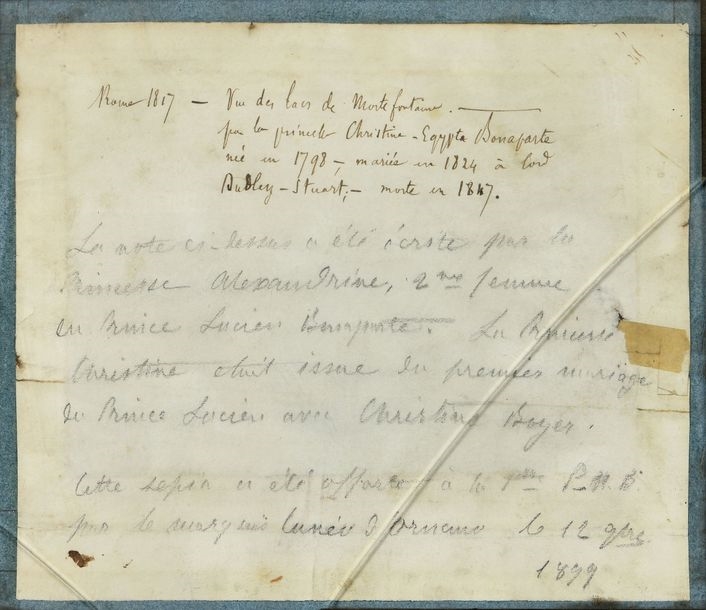 Rome 1817 — Vue des lacs de Mortefontaine. —
par la princesse Christine-Egypta Bonaparte
née en 1798, — mariée en 1824 à Lord
Dudley-Stuart, — morte en 1847.
La note ci-dessus a été écrite par la
Princesse Alexandrine, 2me femme
du Prince Lucien Bonaparte. La Princesse
Christine était issue du premier mariage
du Prince Lucien avec Christine Boyer.
Cette sepia a été offerte à la P. N. B
par le marquis d'Ornano le 12 9bre
1899